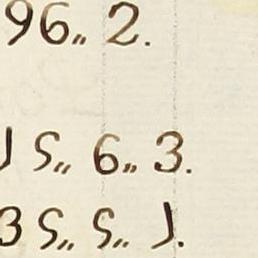 96,, 2.
15,, 6,, 3.
35,, 5,, 1.